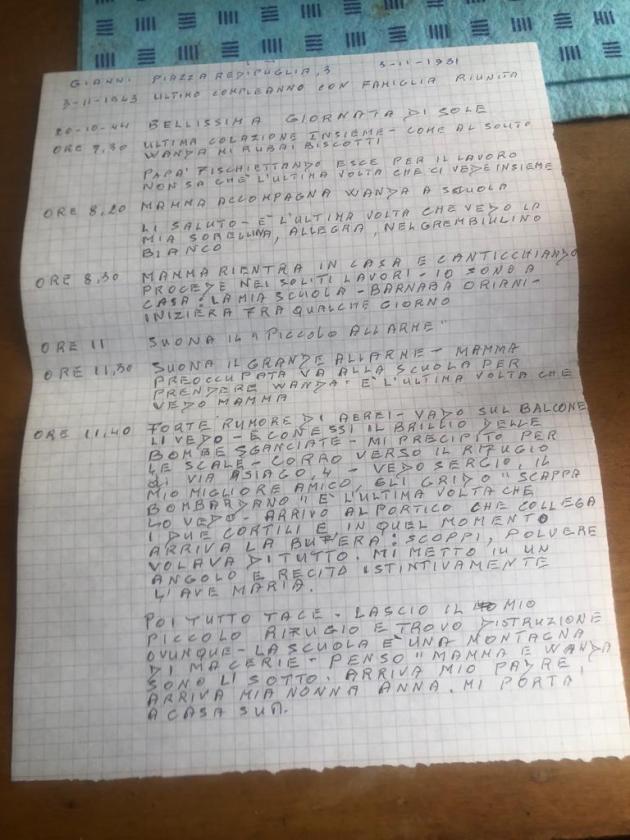 GIANNI PIAZZA REDIPUGLIA, 3 3-11-1931
3-11-1943 ULTIMO COMPLEANNO CON FAMIGLIA RIUNITA
20-10-44 BELLISSIMA GIORNATA DI SOLE
ORE 7,30 ULTIMA COLAZIONE INSIEME - COME AL SOLITO
WANDA MI RUBA I BISCOTTI
PAPA' FISCHIETTANDO ESCE PER IL LAVORO
NON SA CHE È L'ULTIMA VOLTA CHE CI VEDE INSIEME
ORE 8,20 MAMMA ACCOMPAGNA WANDA A SCUOLA
LI SALUTO - E' L'ULTIMA VOLTA CHE VEDO LA
MIA SORELLINA, ALLEGRA, NEL GREMBIULINO
BIANCO
ORE 8,30 MAMMA RIENTRA IN CASA E CANTICCHIANDO
PROCEDE NEI SOLITI LAVORI - IO SONO A
CASA: LA MIA SCUOLA - BARNABA ORIANI -
INIZIERA FRA QUALCHE GIORNO
ORE 11 SUONA IL "PICCOLO ALLARME"
ORE 11,30 SUONA IL GRANDE ALLARME - MAMMA
PREOCCUPATA VA ALLA SCUOLA PER
PRENDERE WANDA. E' L'ULTIMA VOLTA CHE
VEDO MAMMA
ORE 11,40 FORTE RUMORE DI AEREI - VADO SUL BALCONE
LI VEDO - E CON ESSI IL BRILLIO DELLE
BOMBE SGANCIATE - MI PRECIPITO PER
LE SCALE - CORRO VERSO IL RIFUGIO
DI VIA ASIAGO, 4 - VEDO SERGIO, IL
MIO MIGLIORE AMICO, GLI GRIDO "SCAPPA
BOMBARDANO" E' L'ULTIMA VOLTA CHE
LO VEDO - ARRIVO AL PORTICO CHE COLLEGA
I DUE CORTILI E, IN QUEL MOMENTO
ARRIVA LA BUFERA: SCOPPI, POLVERE
VOLAVA DI TUTTO. MI METTO IN UN
ANGOLO E RECITO ISTINTIVAMENTE
L'AVE MARIA.
POI TUTTO TACE - LASCIO IL MIO
PICCOLO RIFUGIO E TROVO DISTRUZIONE
OVUNQUE - LA SCUOLA E' UNA MONTAGNA
DI MACERIE - PENSO "MAMMA E WANDA
SONO LI SOTTO. ARRIVA MIO PADRE,
ARRIVA MIA NONNA ANNA. MI PORTA
A CASA SUA.